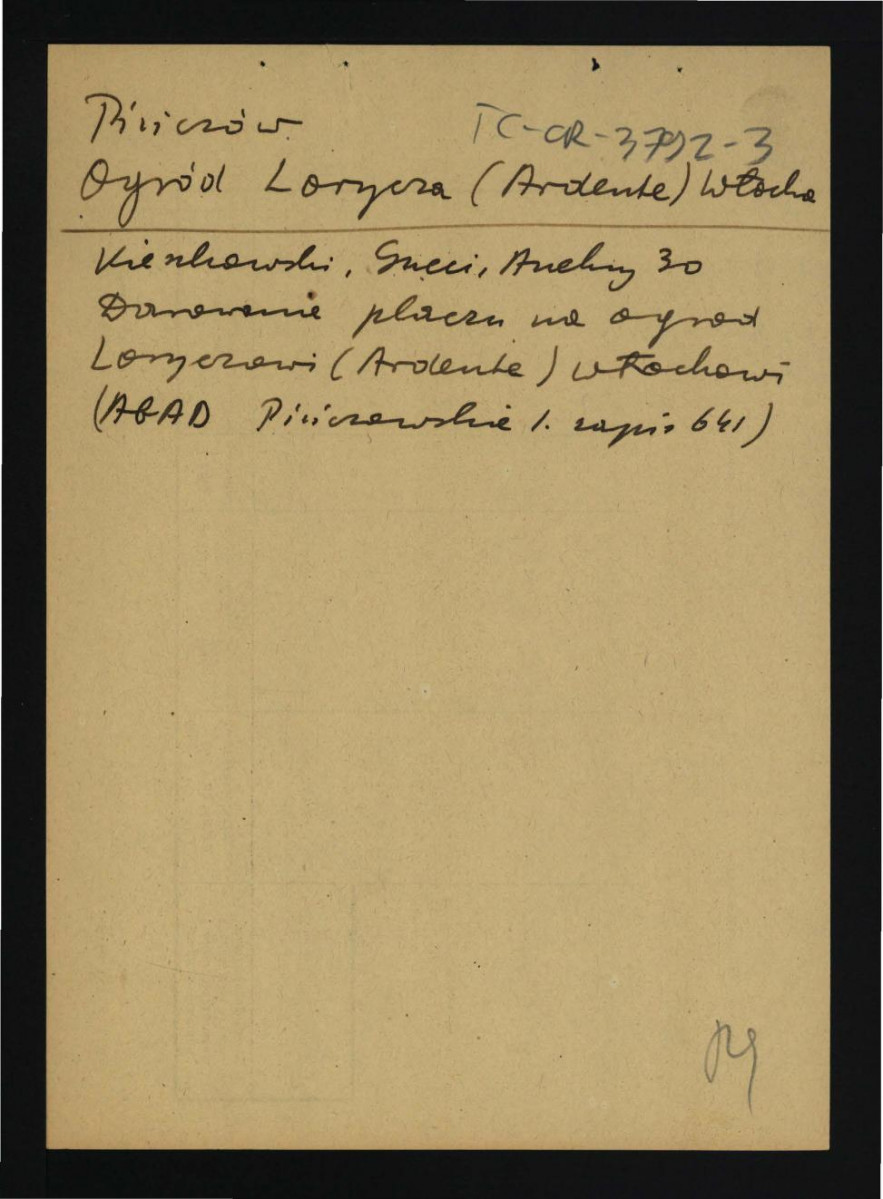 Pińczów TC-CR-3792-3
Ogród Lorycza (Ardente) Włocha
Kieszkowski, Gucci, Aneksy 30
Darowanie placzu na ogrod
Loryczowi (Ardente) włochowi
(AGAD Pińczowskie 1. zapis 641)